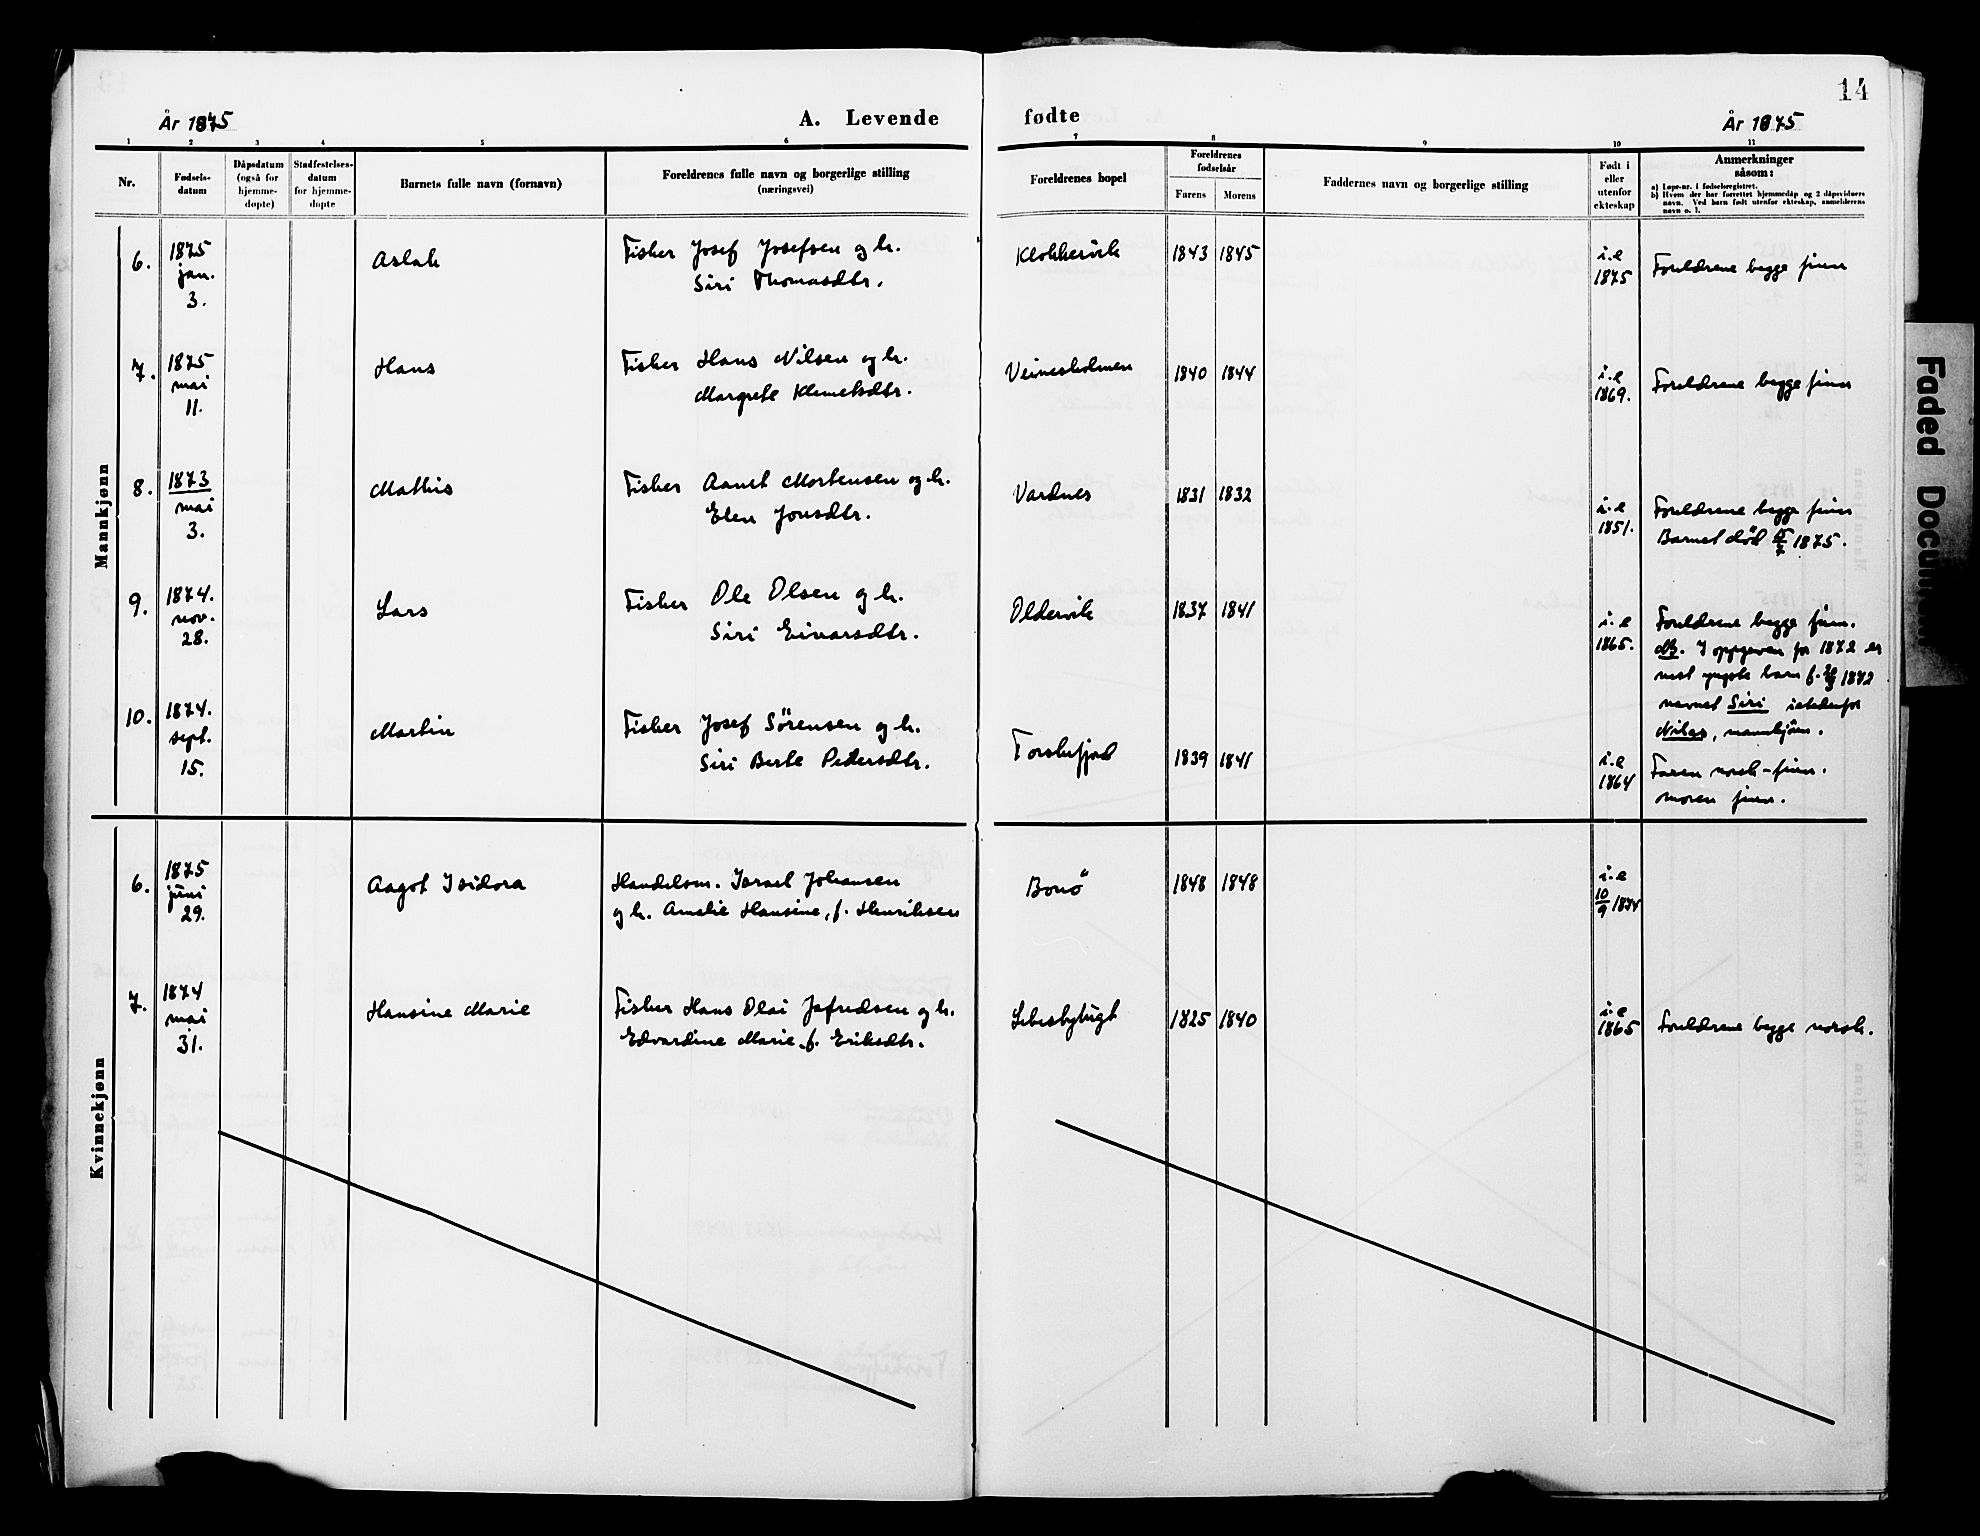 14
År 1875
A. Levende
fødte
År 1875
1 2 3 4 5 6 7 8 9 10 11
Nr.
Fødsels-
datum
Dåpsdatum
(også for
hjemme-
døpte)
Stadfestelses-
datum
for hjemme-
døpte
Barnets fulle navn (fornavn)
Foreldrenes fulle navn og borgerlige stilling
(næringsvei)
Foreldrenes bopel
Foreldrenes
fødselsår
Farens Morens
Faddernes navn og borgerlige stilling
Født i
eller
utenfor
ekteskap
Anmerkninger
såsom:
a) Løpe-nr. i fødselsregistret.
b) Hvem der har forrettet hjemmedåp og 2 dåpsvidners
navn. Ved barn født utenfor ekteskap, anmelderens
navn o. l.
Mannkjønn
6. 1875 jan. 3. Aslak
Fisker Josef Josefsen og h.
Siri Thomasdtr.
Klokkervik 1843 1845 i.e 1875 Foreldrene begge finn
7. 1875 mai 11. Hans
Fisker Hans Nilsen og h.
Margrete Klemetsdtr.
Veinesholmen 1840 1844 i.e 1869. Foreldrene begge finn
8. 1873 mai 3. Mathis
Fisker Aanet Mortensen og h.
Elen Jonsdtr.
Vardnes 1831 1832 i.e 1851. Foreldrene begge finn
Barnet død 15/7 1875.
9. 1874. nov. 28. Lars
Fisker Ole Olsen og h.
Siri Eivarsdtr.
Oldervik 1837 1841 i.e 1865. Foreldrene begge finn.
NB. I oppgaven for 1872 er
nest yngste barn f. 1872
nevnet Siri istedenfor
Nilas, mannkjönn.
10. 1874. sept. 15. Martin
Fisker Josef Sörensen og h.
Siri Berte Pedersdtr.
Torskefjord 1839 1841 i.e 1864 Faren norsk-finn.
moren finn.
Kvinnekjønn
6. 1875 juni 29. Aagot Isidora
Handelsm. Israel Johansen
og h. Amalie Hansine, f. Henriksen
Bonö 1848 1848 i.e 10/9 1874
7. 1874 mai 31. Hansine Marie
Fisker Hans Olai Jafredsen og h.
Edvardine Marie, f. Eriksdtr.
Lebesbybugt 1825 1840 i.e 1865 Foreldrene begge norsk.
Faded Docum